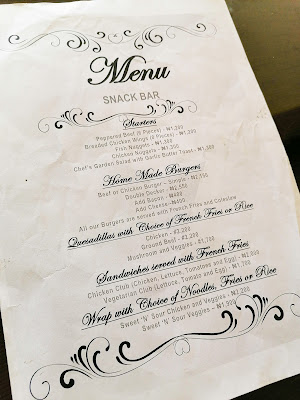 Menu
SNACK BAR
Starters
Peppered Beef (6 Pieces) - ₦1,300
Breaded Chicken Wings (6 Pieces) - ₦1,300
Fish Nuggets - ₦1,300
Chicken Nuggets - ₦1,300
Chef's Garden Salad with Garlic Butter Toast - ₦1,300
Home Made Burgers
Beef or Chicken Burger - Single - ₦2,100
Double Decker - ₦2,550
Add Bacon - ₦400
Add Cheese - ₦400
All our Burgers are served with French Fries and Coleslaw
Quesadillas with Choice of French Fries or Rice
Chicken - ₦2,200
Ground Beef - ₦2,200
Mushroom and Veggies - ₦1,700
Sandwiches served with French Fries
Chicken Club (Chicken, Lettuce, Tomatoes and Egg)
Vegetarian Club (Lettuce, Tomato and Egg)
Wrap with Choice of Noodles, Fries or Rice
Sweet 'N' Sour Chicken and Veggies
Sweet 'N' Sour Veggies